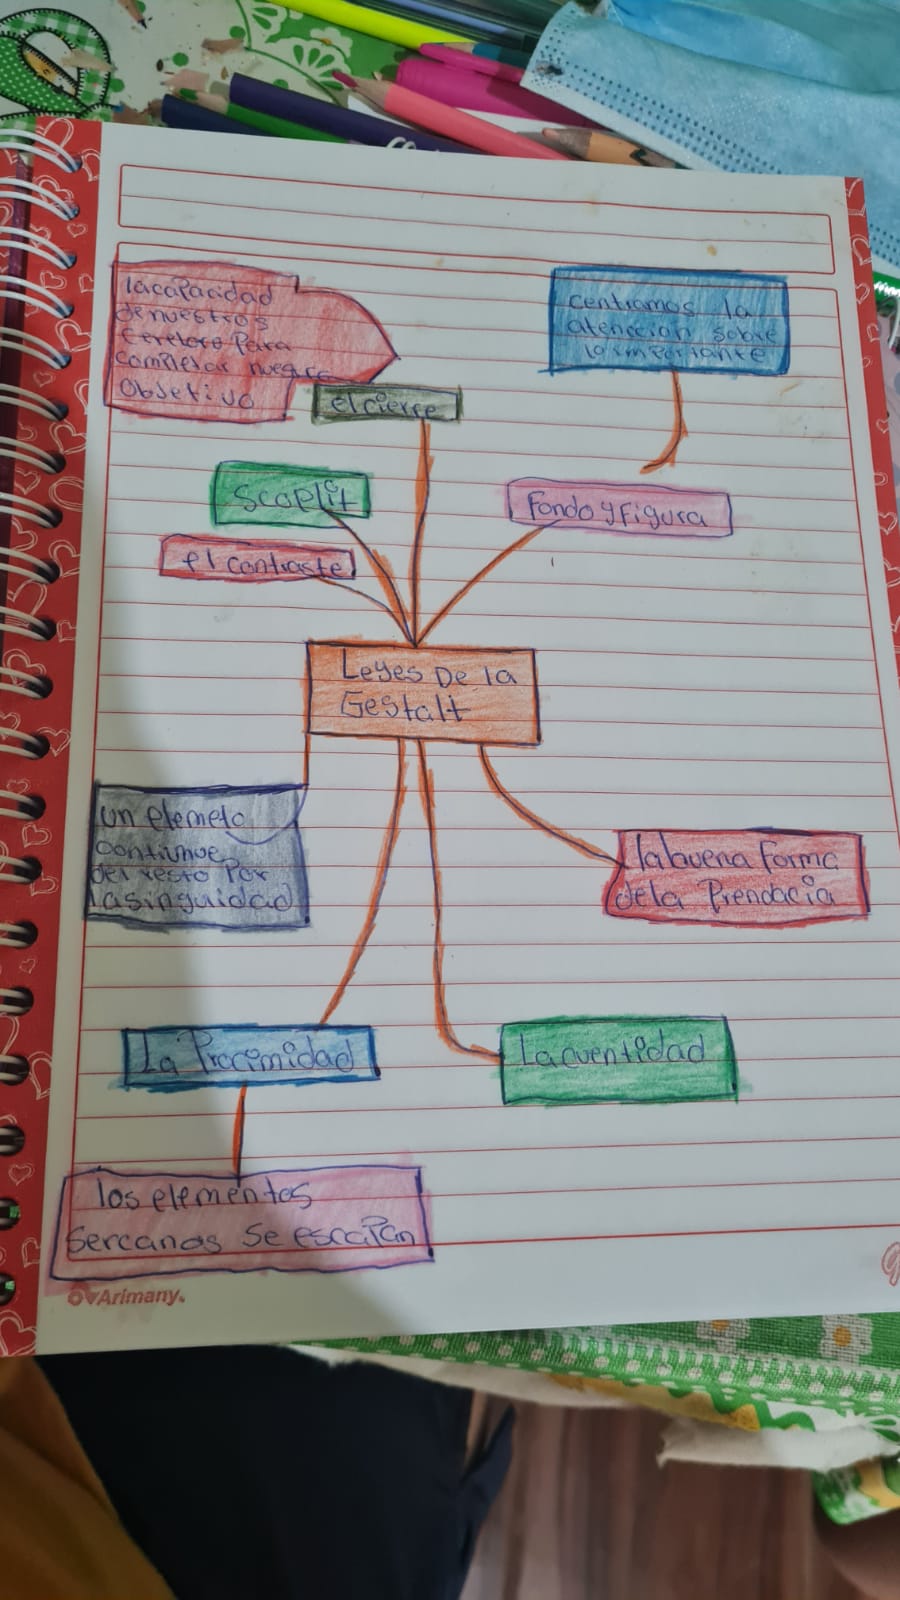 la capacidad
de nuestros
para
completar nuestro
Objetivo
el cierre
Centramos la
atencion sobre
lo importante
Scaplit
Fondo y Figura
el contraste
Leyes De la
Gestalt
un elemeto
del resto por
la singuidad
la buena forma
de la
La Procimidad
La cuentidad
los elementos
sercanos se escapan
Arimany.